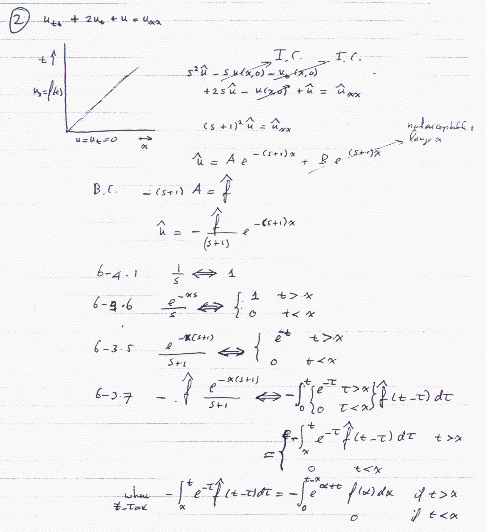 ② u_tt + 2u_t + u = u_xx
t ↑
u_x = f(t)
u = u_t = 0 x
I.C. I.C.
s²û - s u(x,0) - u_t(x,0)
+ 2sû - u(x,0) + û = û_xx
(s+1)² û = û_xx
û = A e^{-(s+1)x} + B e^{(s+1)x}
large x
B.C. -(s+1) A = f̂
û = - f̂/(s+1) e^{-(s+1)x}
6-4.1 1/s ⇔ 1
6-3.6 e^{-xs}/s ⇔ { 1 t>x
0 t<x
6-3.5 e^{-x(s+1)}/(s+1) ⇔ { e^{-t} t>x
0 t<x
6-3.7 - f̂ e^{-x(s+1)}/(s+1) ⇔ -∫_0^t { e^{-τ} τ>x
0 τ<x } f̂(t-τ) dτ
= { -∫_x^t e^{-τ} f̂(t-τ) dτ t>x
0 t<x
when -∫_x^t e^{-τ} f̂(t-τ) dτ = -∫_0^{t-x} e^{α+t} f(α) dα if t>x
t-τ=α 0 if t<x